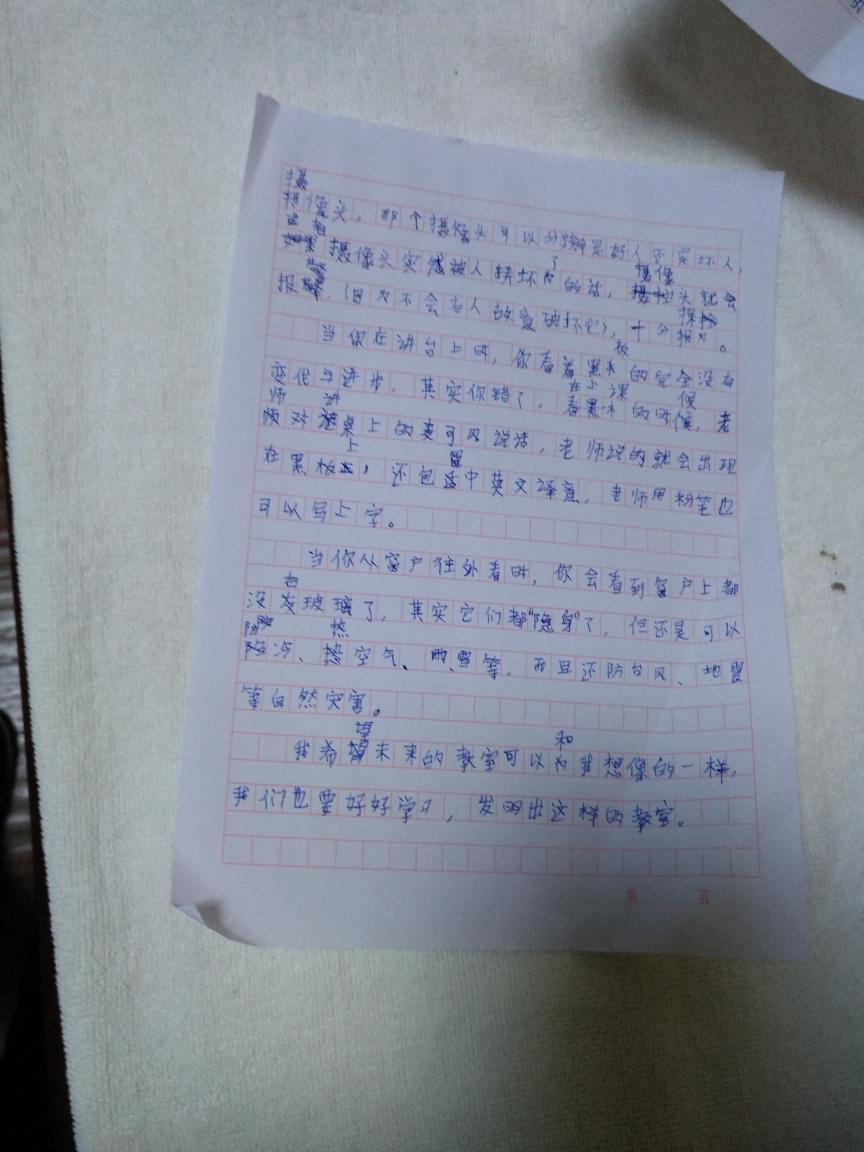 摄像头，那个摄像头可以分辨是好人还是坏人，
摄像头突然被人损坏了的话，摄像头就会
报警.（因为不会有人故意破坏它），十分
当你在讲台上时，你看着黑板的完全没有
变化与进步，其实你错了，在上课的时候，老
师对讲桌上的麦可风说话，老师说的就会出现
在黑板上，还包括中英文译意，老师用粉笔也
可以写上字。
当你从窗户往外看时，你会看到窗户上都
没有玻璃了，其实它们都“隐身”了，但还是可以
防冷、热空气、雨、雪等，而且还防台风、地震
等自然灾害。
我希望未来的教室可以和我想像的一样，
我们也要好好学习，发明出这样的教室。
第 页